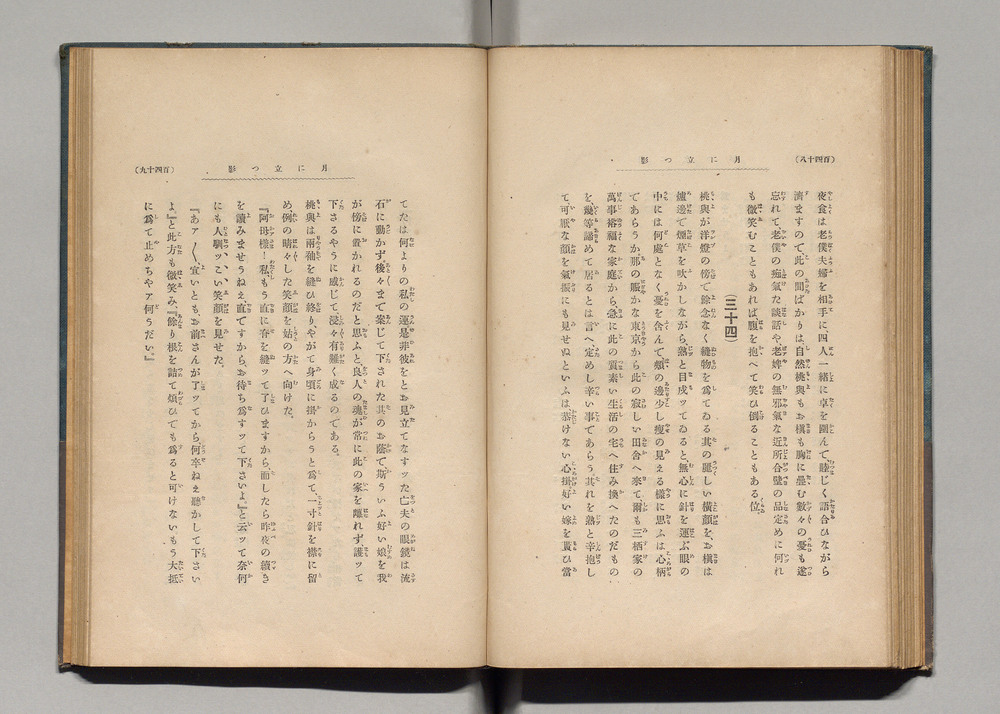 (百四十八)
月に立つ影
夜食は老僕夫婦を相手に、四人一緒に卓を圍んで、睦じく語合ひながら
濟ますので、此の間ばかりは、自然桃與もお槇も胸に疊む數々の憂も遂
忘れて、老僕の痴氣た談話や老婢の無邪氣な近所合壁の品定めに何れ
も微笑むこともあれば、腹を抱へて笑ひ倒ることもある位。
(三十四)
桃與が洋燈の傍で餘念なく縫物を爲てゐる其の麗しい橫顏を、お槇は
爐邊で煙草を吹かしながら、熟と目戍ッてゐると、無心に針を運ぶ眼の
中には何處となく、憂を含んで頰の邊少し瘦の見える樣に思ふは心柄
であらうか那の賑かな東京から此の寂しい田舍へ來て、爾も三栖家の
萬事裕福な家庭から、急に此の質素い生活の宅へ住み換へたのだもの
を、幾等諦めて居るとは言へ、定めし辛い事であらう、其れを熟と辛抱し
て、可厭な顏を氣振にも見せぬといふは、恭けない心掛、好い嫁を貰ひ當
(百四十九)
月に立つ影
てたは何よりの私の運、是非彼をとお見立てなすッた亡夫の眼鏡は流
石に動かず、後々まで案じて下された其のお蔭で、斯ういふ好い娘を我
が傍に置かれるのだと思ふと、良人の魂が常に此の家を離れず、護ッて
下さるやうに感じて、浸々有難く成るのである。
桃與は兩袖を縫ひ終り、やがて身頃に掛からうと爲て、一寸針を襟に留
め、例の晴々した笑顏を姑の方へ向けた。
『阿母樣！私、もう直に脊を縫ッて了ひますから、而したら昨夜の續き
を讀みませうねえ、直ですから、お待ち爲すッて下さいよ。』と云ッて奈何
にも人馴ッこい笑顏を見せた。
『あア〳〵、宜いとも、お前さんが了ッてから、何卒ねえ聽かして下さい
よ』と此方も微笑み、『餘り根を詰て煩ひでも爲ると可けない、もう大抵
に爲て止めちやア何うだい。』